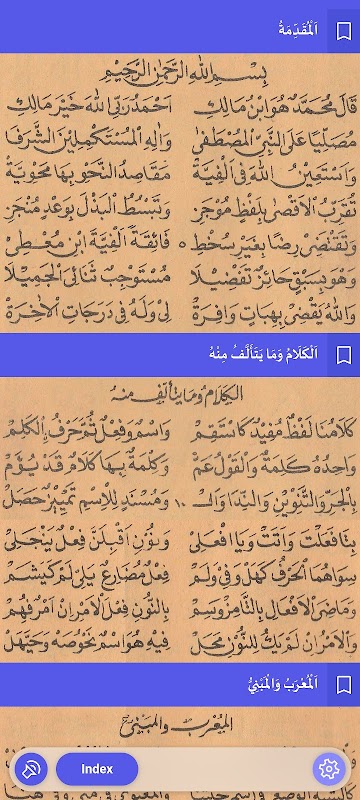 اَلْمُقَدِّمَةُ
بِسْمِ اللهِ الرَّحْمٰنِ الرَّحِيْمِ
قَالَ مُحَمَّدٌ هُوَ ابْنُ مَالِكِ اَحْمَدُ رَبِّي اللهَ خَيْرَ مَالِكِ
مُصَلِّيًا عَلَى النَّبِيِّ الْمُصْطَفٰى وَاٰلِهِ الْمُسْتَكْمِلِيْنَ الشَّرَفَا
وَاَسْتَعِيْنُ اللهَ فِى اَلْفِيَّةْ مَقَاصِدُ النَّحْوِ بِهَا مَحْوِيَّةْ
تُقَرِّبُ الْاَقْصٰى بِلَفْظٍ مُوْجَزِ وَتَبْسُطُ الْبَذْلَ بِوَعْدٍ مُنْجَزِ
وَتَقْتَضِى رِضًا بِغَيْرِ سُخْطِ ٥ فَائِقَةً اَلْفِيَّةَ ابْنِ مُعْطِى
وَهْوَ بِسَبْقٍ حَائِزٌ تَفْضِيْلَا مُسْتَوْجِبٌ ثَنَائِيَ الْجَمِيْلَا
وَاللهُ يَقْضِى بِهِبَاتٍ وَافِرَةْ لِى وَلَهُ فِى دَرَجَاتِ الْاٰخِرَةْ
اَلْكَلَامُ وَمَا يَتَأَلَّفُ مِنْهُ
الكَلَامُ وَمَا يَتَأَلَّفُ مِنْهُ
كَلَامُنَا لَفْظٌ مُفِيْدٌ كَاسْتَقِمْ وَاسْمٌ وَفِعْلٌ ثُمَّ حَرْفٌ الْكَلِمْ
وَاحِدُهُ كَلِمَةٌ وَالْقَوْلُ عَمْ وَكَلْمَةٌ بِهَا كَلَامٌ قَدْ يُؤَمْ
بِالْجَرِّ وَالتَّنْوِيْنِ وَالنِّدَا وَاَلْ ١٠ وَمُسْنَدٍ لِلْاِسْمِ تَمْيِيْزٌ حَصَلْ
بِتَا فَعَلْتَ وَاَتَتْ وَيَا افْعَلِى وَنُوْنِ اَقْبِلَنَّ فِعْلٌ يَنْجَلِى
سِوَاهُمَا الْحَرْفُ كَهَلْ وَفِى وَلَمْ فِعْلٌ مُضَارِعٌ يَلِى لَمْ كَيَشَمْ
وَمَاضِيَ الْاَفْعَالِ بِالتَّا مِزْ وَسِمْ بِالنُّوْنِ فِعْلَ الْاَمْرِ اِنْ اَمْرٌ فُهِمْ
وَالْاَمْرُ اِنْ لَمْ يَكُ لِلنُّوْنِ مَحَلْ فِيْهِ هُوَ اسْمٌ نَحْوُ صَهْ وَحَيَّهَلْ
اَلْمُعْرَبُ وَالْمَبْنِيُّ
المُعْرَبُ وَالْمَبْنِيُّ
Index